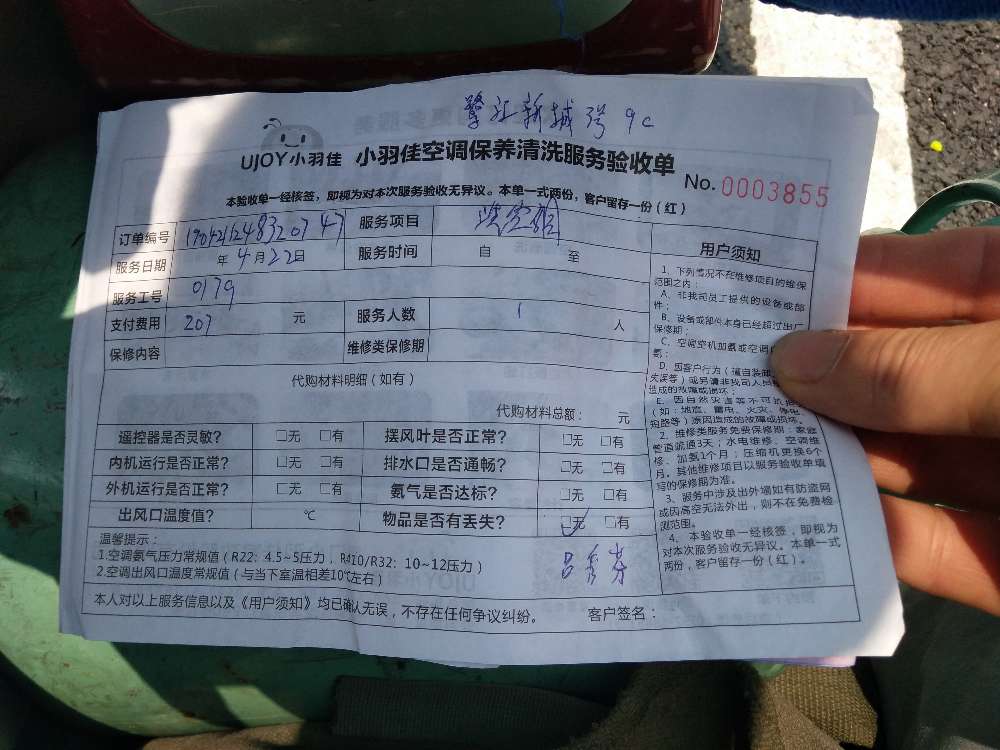 UJOY小羽佳 小羽佳空调保养清洗服务验收单
No. 0003855
本验收单一经核签，即视为对本次服务验收无异议。本单一式两份，客户留存一份（红）
订单编号 服务项目
服务日期 年 4月22日 服务时间 自 至
服务工号 0179
支付费用 207 元 服务人数 1 人
保修内容 维修类保修期
代购材料明细（如有）
代购材料总额： 元
遥控器是否灵敏？ □无 □有 摆风叶是否正常？ □无 □有
内机运行是否正常？ □无 □有 排水口是否通畅？ □无 □有
外机运行是否正常？ □无 □有 氨气是否达标？ □无 □有
出风口温度值？ ℃ 物品是否有丢失？ □无 □有
温馨提示：
1.空调氨气压力常规值（R22：4.5~5压力，R410/R32：10~12压力）
2.空调出风口温度常规值（与当下室温相差10℃左右）
本人对以上服务信息以及《用户须知》均已确认无误，不存在任何争议纠纷。 客户签名：
用户须知
1、下列情况不在维修项目的维保
范围之内：
A、非我司员工提供的设备或部
件；
B、设备或部件本身已经超过出厂
保修期；
C、空调整机加氨或空调
氨；
D、因客户行为（擅自装卸
失误等）或另请非我司人员
造成的故障或损坏；
E、因自然灾害等不可抗
（如：地震、雷电、火灾、停电
短路等）原因造成的故障或损坏。
2、维修类服务免费保修期：家庭
管道疏通3天；水电维修、空调维
修、加氨1个月；压缩机更换6个
月。其他维修项目以服务验收单填
写的保修期为准。
3、服务中涉及出外墙如有防盗网
或因高空无法外出，则不在免费检
测范围。
4、本验收单一经核签，即视为
对本次服务验收无异议。本单一式
两份，客户留存一份（红）。